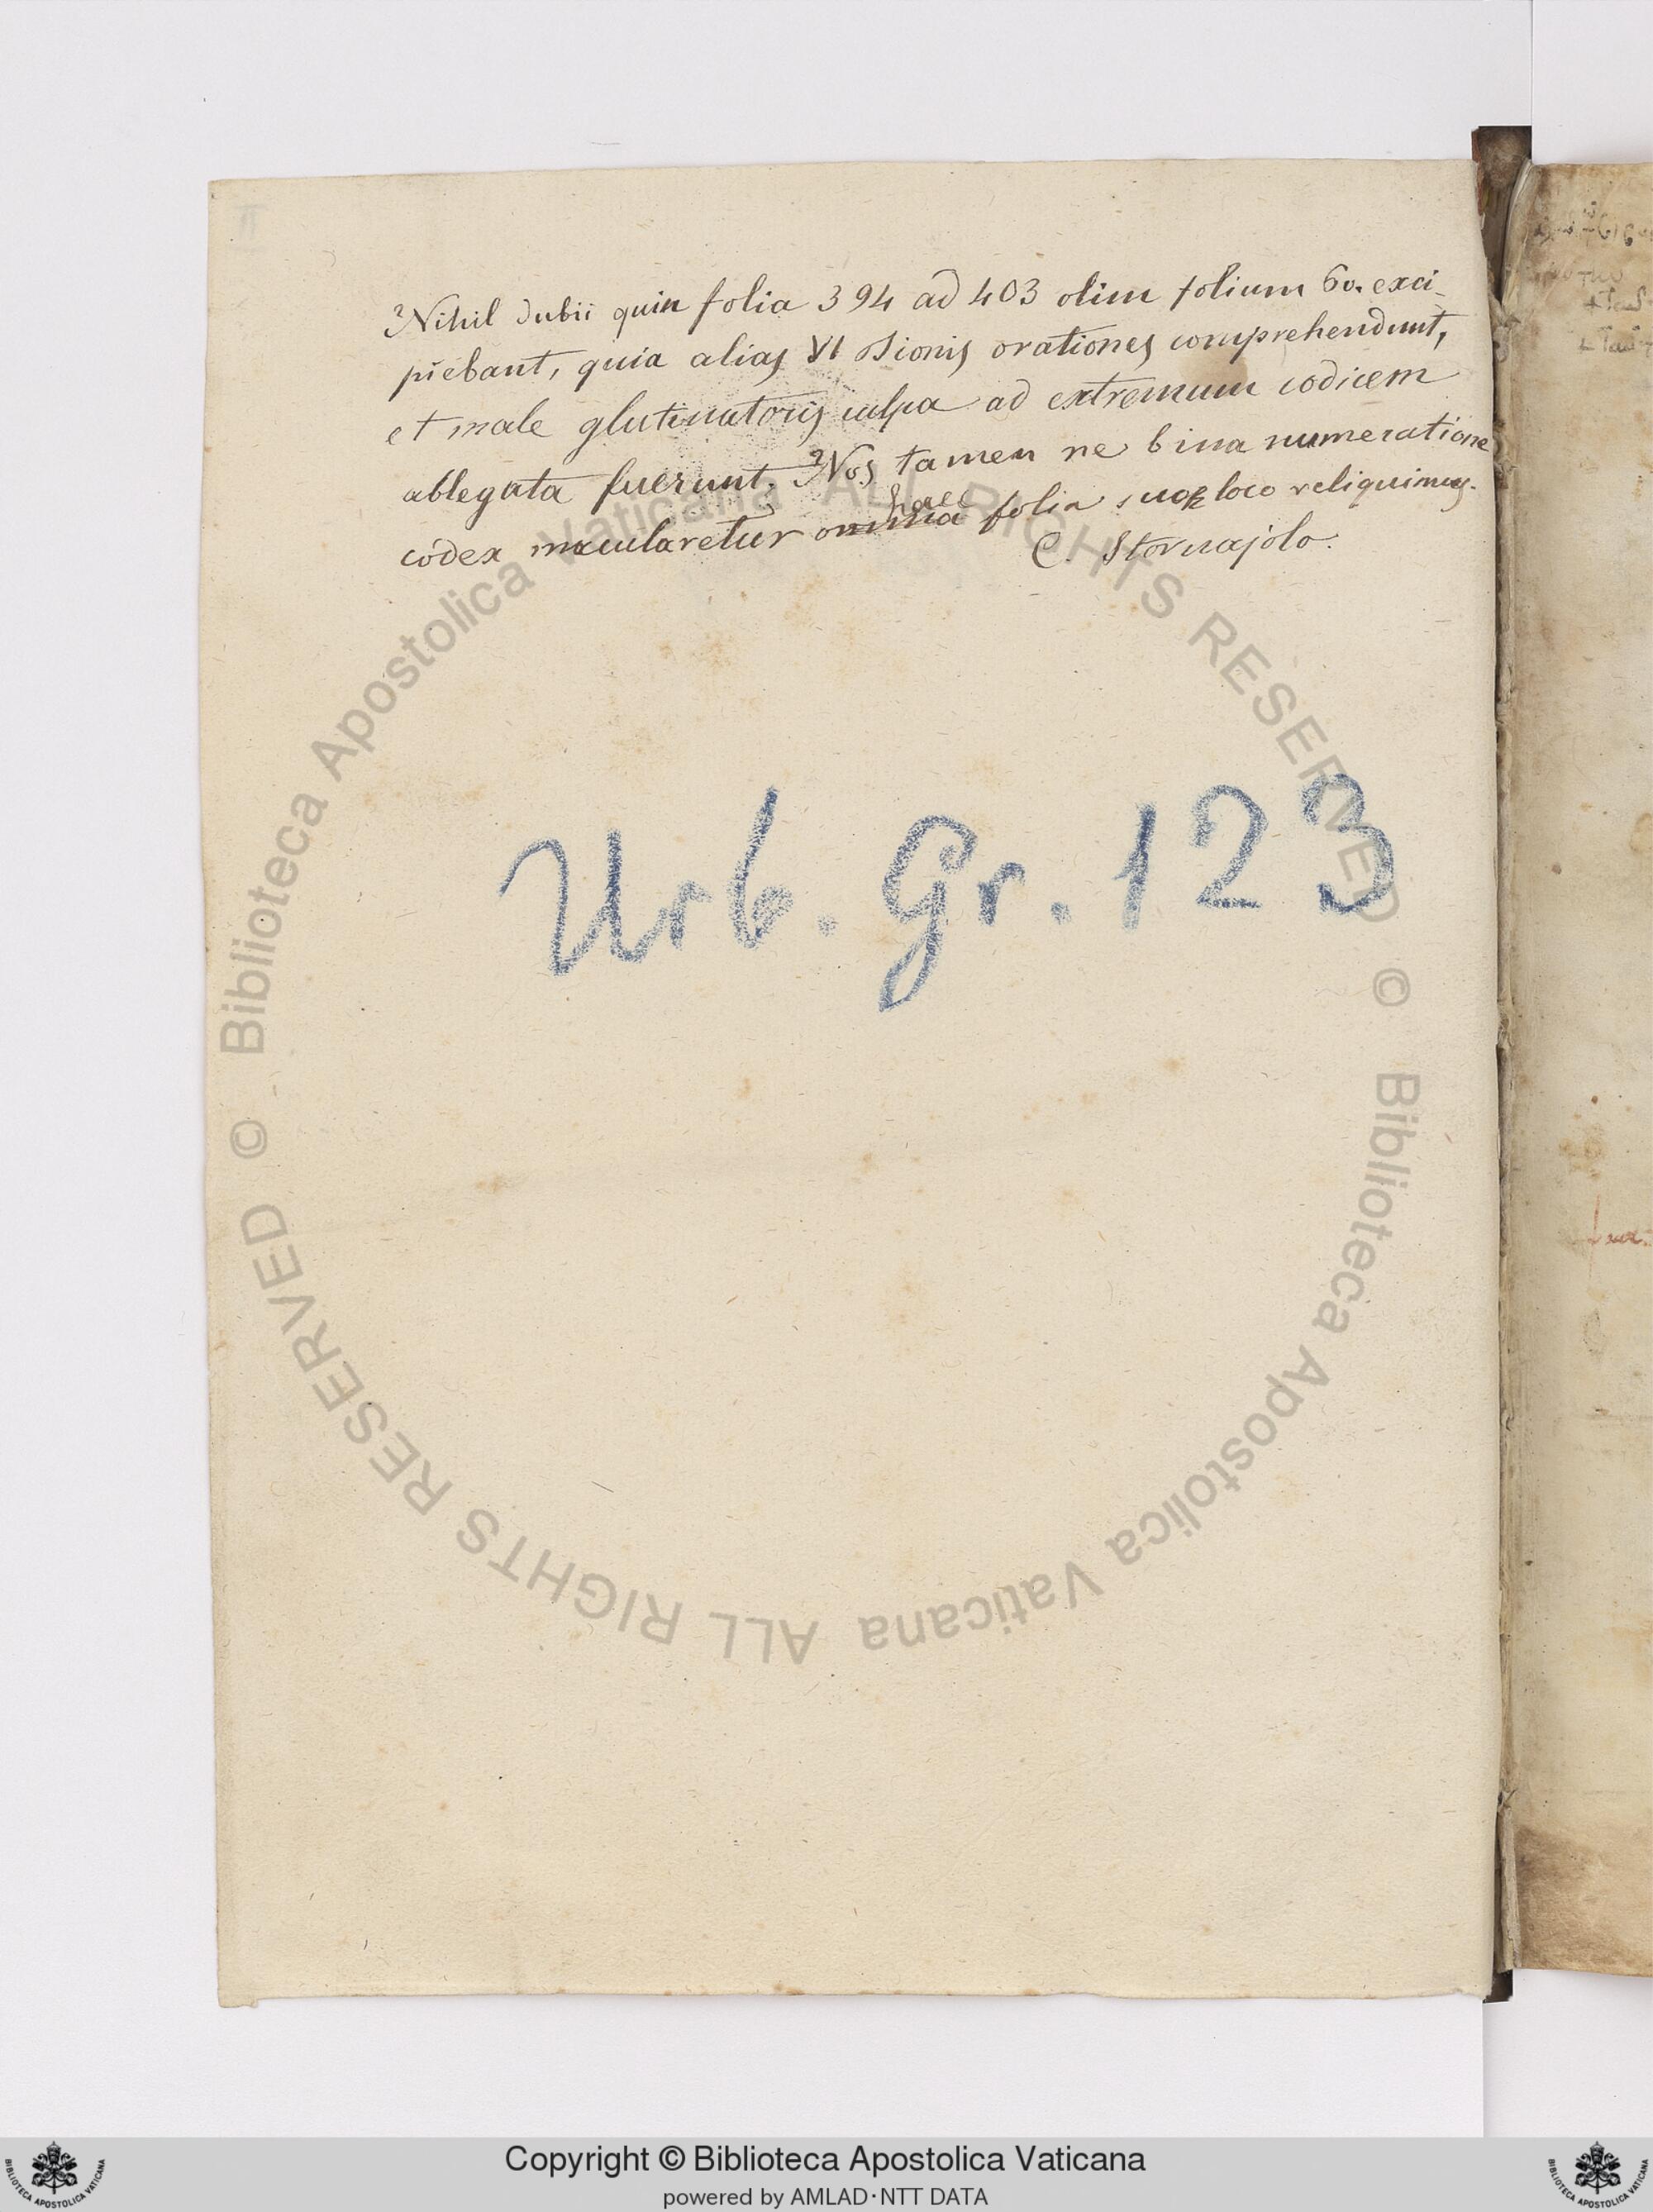 II
Nihil dubii quin folia 394 ad 403 olim folium 60. exci-
piebant, quia alias VI Dionis orationes comprehendunt,
et male glutinatoris culpa ad extremum codicem
ablegata fuerunt. Nos tamen ne bina numeratione
codex macularetur omnia haec folia suo loco reliquimus.
C. Stornajolo.
Urb. Gr. 123
© Biblioteca Apostolica Vaticana ALL RIGHTS RESERVED
© Biblioteca Apostolica Vaticana ALL RIGHTS RESERVED
Copyright © Biblioteca Apostolica Vaticana
powered by AMLAD·NTT DATA
BIBLIOTECA APOSTOLICA VATICANA
BIBLIOTECA APOSTOLICA VATICANA